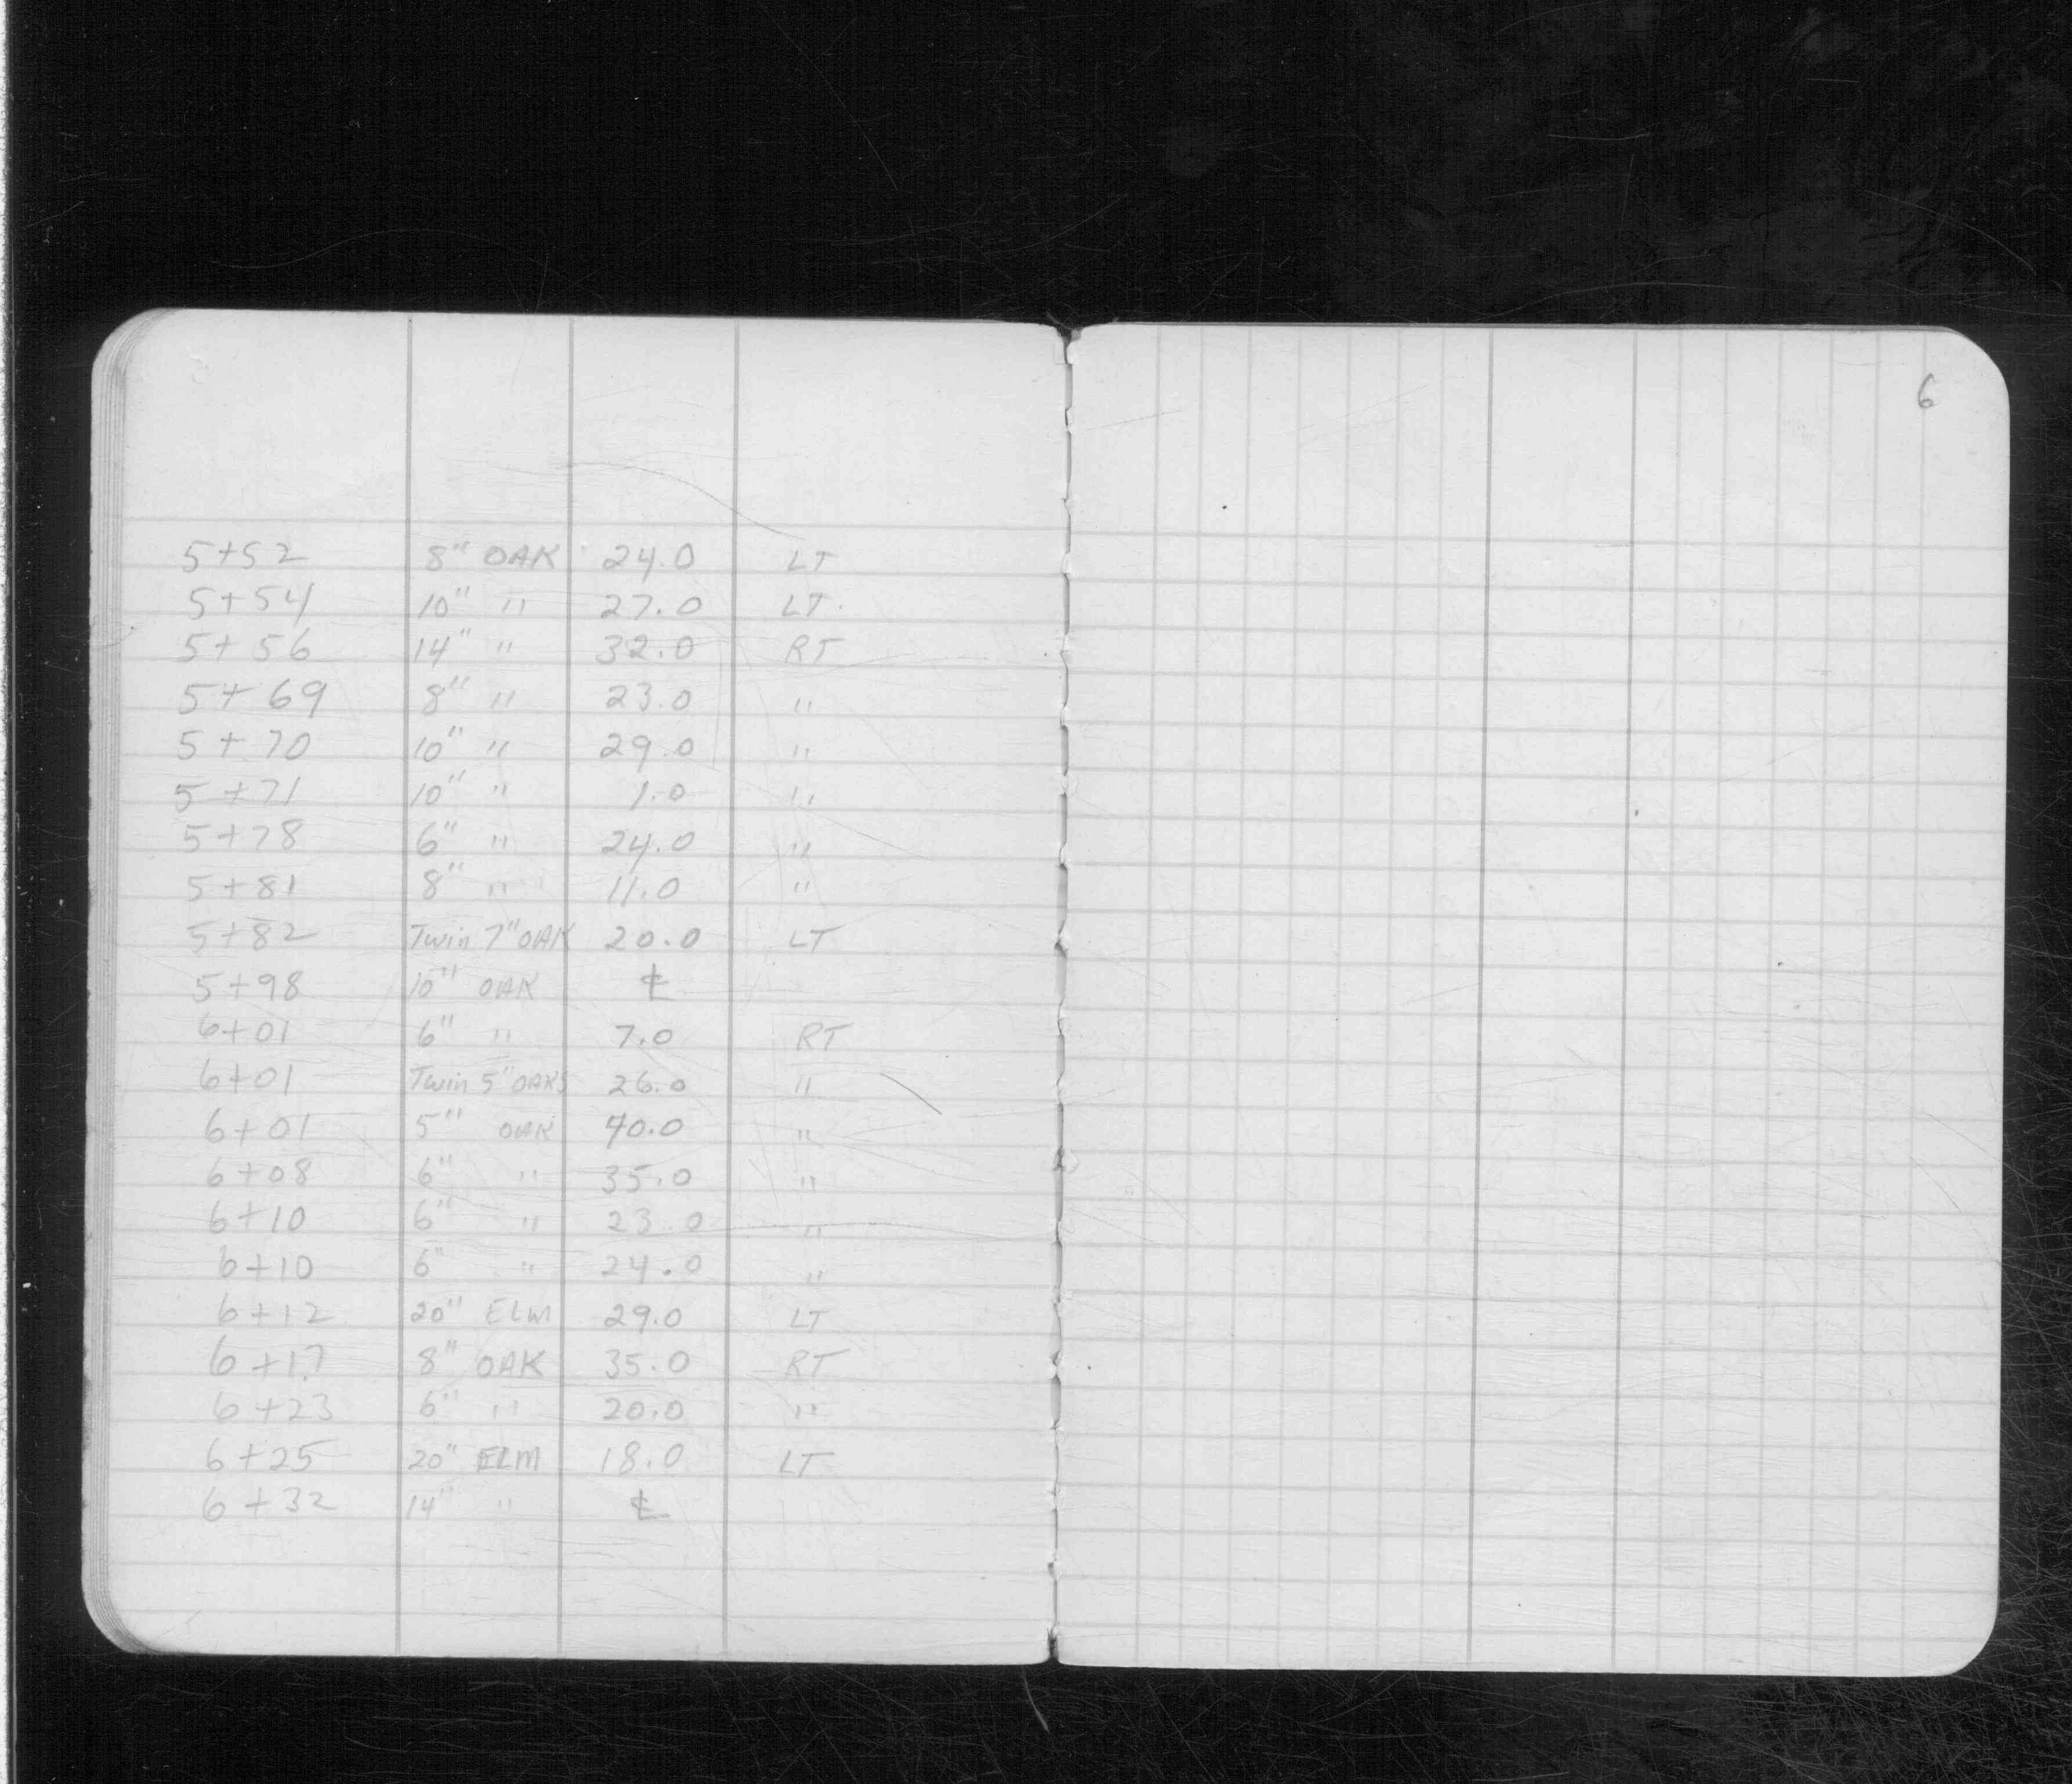 5+52 8" OAK 24.0 LT
5+54 10" " 27.0 LT.
5+56 14" " 32.0 RT
5+69 8" " 23.0 "
5+70 10" " 29.0 "
5+71 10" " 1.0 "
5+78 6" " 24.0 "
5+81 8" " 11.0 "
5+82 Twin 7" OAK 20.0 LT
5+98 10" OAK ℄
6+01 6" " 7.0 RT
6+01 Twin 5" OAKS 26.0 "
6+01 5" OAK 40.0 "
6+08 6" " 35.0 "
6+10 6" " 23.0 "
6+10 6" " 24.0 "
6+12 20" ELM 29.0 LT
6+17 8" OAK 35.0 RT
6+23 6" " 20.0 "
6+25 20" ELM 18.0 LT
6+32 14" " ℄
6